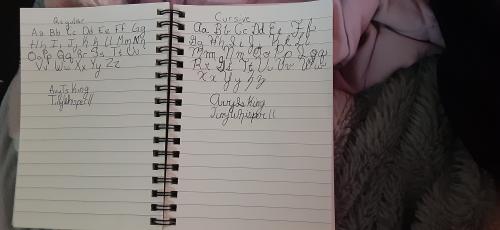 Regular
Aa Bb Cc Dd Ee Ff Gg
Hh Ii Jj Kk Ll Mm Nn
Oo Pp Qq Rr Ss Tt Uu
Vv Ww Xx Yy Zz
King
Cursive
Aa Bb Cc Dd Ee Ff
Gg Hh Ii Jj Kk Ll
Mm Nn Oo Pp Qq
Rr Ss Tt Uu Vv Ww
Xx Yy Zz
King